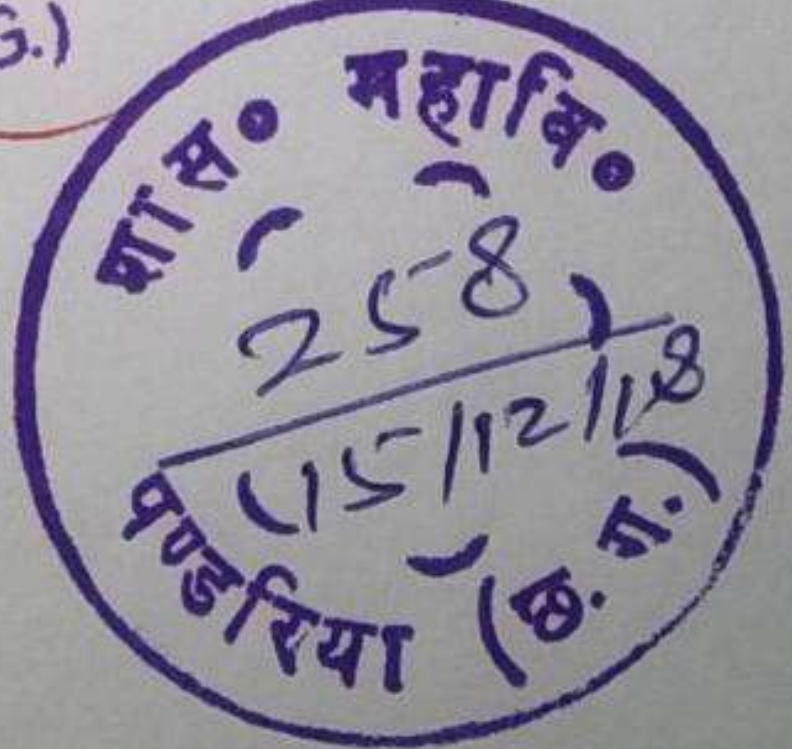 G.)
शास॰ महावि॰
258
15/12/18
पण्डरिया (छ. ग.)